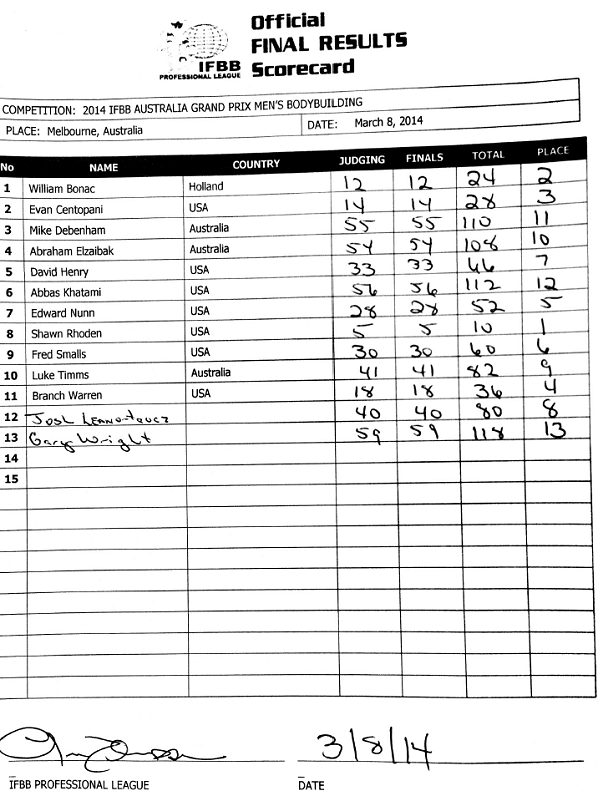 Official
FINAL RESULTS
IFBB Scorecard
PROFESSIONAL LEAGUE
COMPETITION: 2014 IFBB AUSTRALIA GRAND PRIX MEN'S BODYBUILDING
PLACE: Melbourne, Australia DATE: March 8, 2014
No NAME COUNTRY JUDGING FINALS TOTAL PLACE
1 William Bonac Holland 12 12 24 2
2 Evan Centopani USA 14 14 28 3
3 Mike Debenham Australia 55 55 110 11
4 Abraham Elzaibak Australia 54 54 108 10
5 David Henry USA 33 33 66 7
6 Abbas Khatami USA 56 56 112 12
7 Edward Nunn USA 28 28 52 5
8 Shawn Rhoden USA 5 5 10 1
9 Fred Smalls USA 30 30 60 6
10 Luke Timms Australia 41 41 82 9
11 Branch Warren USA 18 18 36 4
12 Josh 40 40 80 8
13 Gary Wright 59 59 118 13
14
15
3/8/14
IFBB PROFESSIONAL LEAGUE DATE